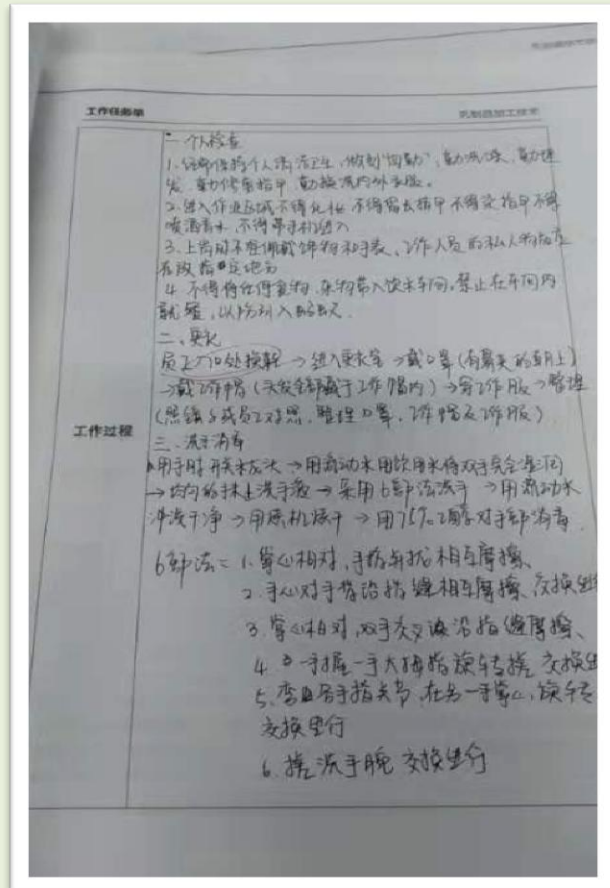 工作任务单 乳制品加工技术
一 个人检查
1. 经常保持个人清洁卫生,做到"四勤",勤洗澡、勤理
发、勤修剪指甲、勤换洗内外衣服。
2. 进入作业区域不得化妆 不得留长指甲 不得染指甲 不得
喷洒香水,不得带手机进入
3. 上岗时不应佩戴饰物和手表,工作人员的私人物品应
存放指定地方
4. 不得将任何食物、杂物带入饮米车间,禁止在车间内
就餐,以防引入
二、更衣
员工入口处换鞋 → 进入更衣室 → 戴口罩(有鼻夹的朝上)
→ 戴工作帽(头发全部藏于工作帽内)→ 穿工作服 → 整理
(照镜子或员工对照,整理口罩、工作帽及工作服)
工作过程
三、洗手消毒
用手肘开关水龙头 → 用流动水用饮用水将双手完全湿润
→ 均匀的抹上洗手液 → 采用6部法洗手 → 用流动水
冲洗干净 → 用烘机烘干 → 用75%乙醇对手部消毒
6部法= 1. 掌心相对,手指并拢相互摩擦、
2. 手心对手背沿指缝相互摩擦、交换进
3. 掌心相对,双手交叉 沿指缝摩擦、
4. 一手握一手大拇指旋转搓 交换进
5. 弯曲各手指关节,在另一手掌心,旋转
交换进行
6. 搓洗手腕 交换进行